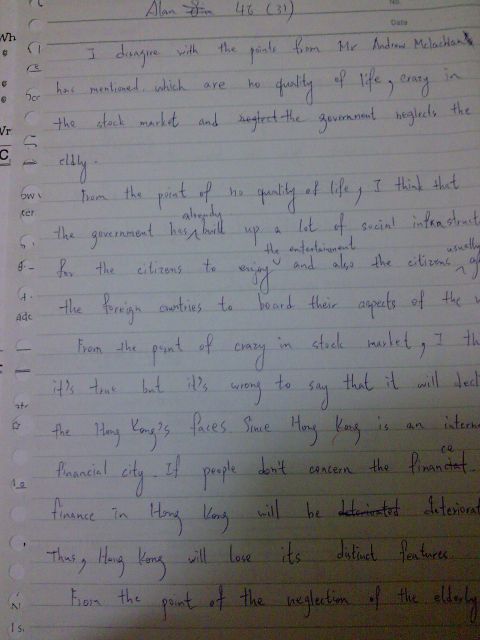 Alan 4B (31)
No.
Date
I disagree with the points from Mr Andrew Mclachlan
has mentioned. which are no quality of life, crazy in
the stock market and neglect the government neglects the
eldly.
From the point of no quality of life, I think that
already
the government has built up a lot of social infrastruct
the entertainment usually
for the citizens to enjoy and also the citizens
the foreign cuntries to board their aspects of the
From the point of crazy in stock market, I th
it's true but it's wrong to say that it will decl
the Hong Kong's faces Since Hong Kong is an intern
financial city. If people don't concern the financ
ce
finance in Hong Kong will be deteriorated deteriorat
Thus, Hong Kong will lose its distinct features.
From the point of the neglection of the elderly